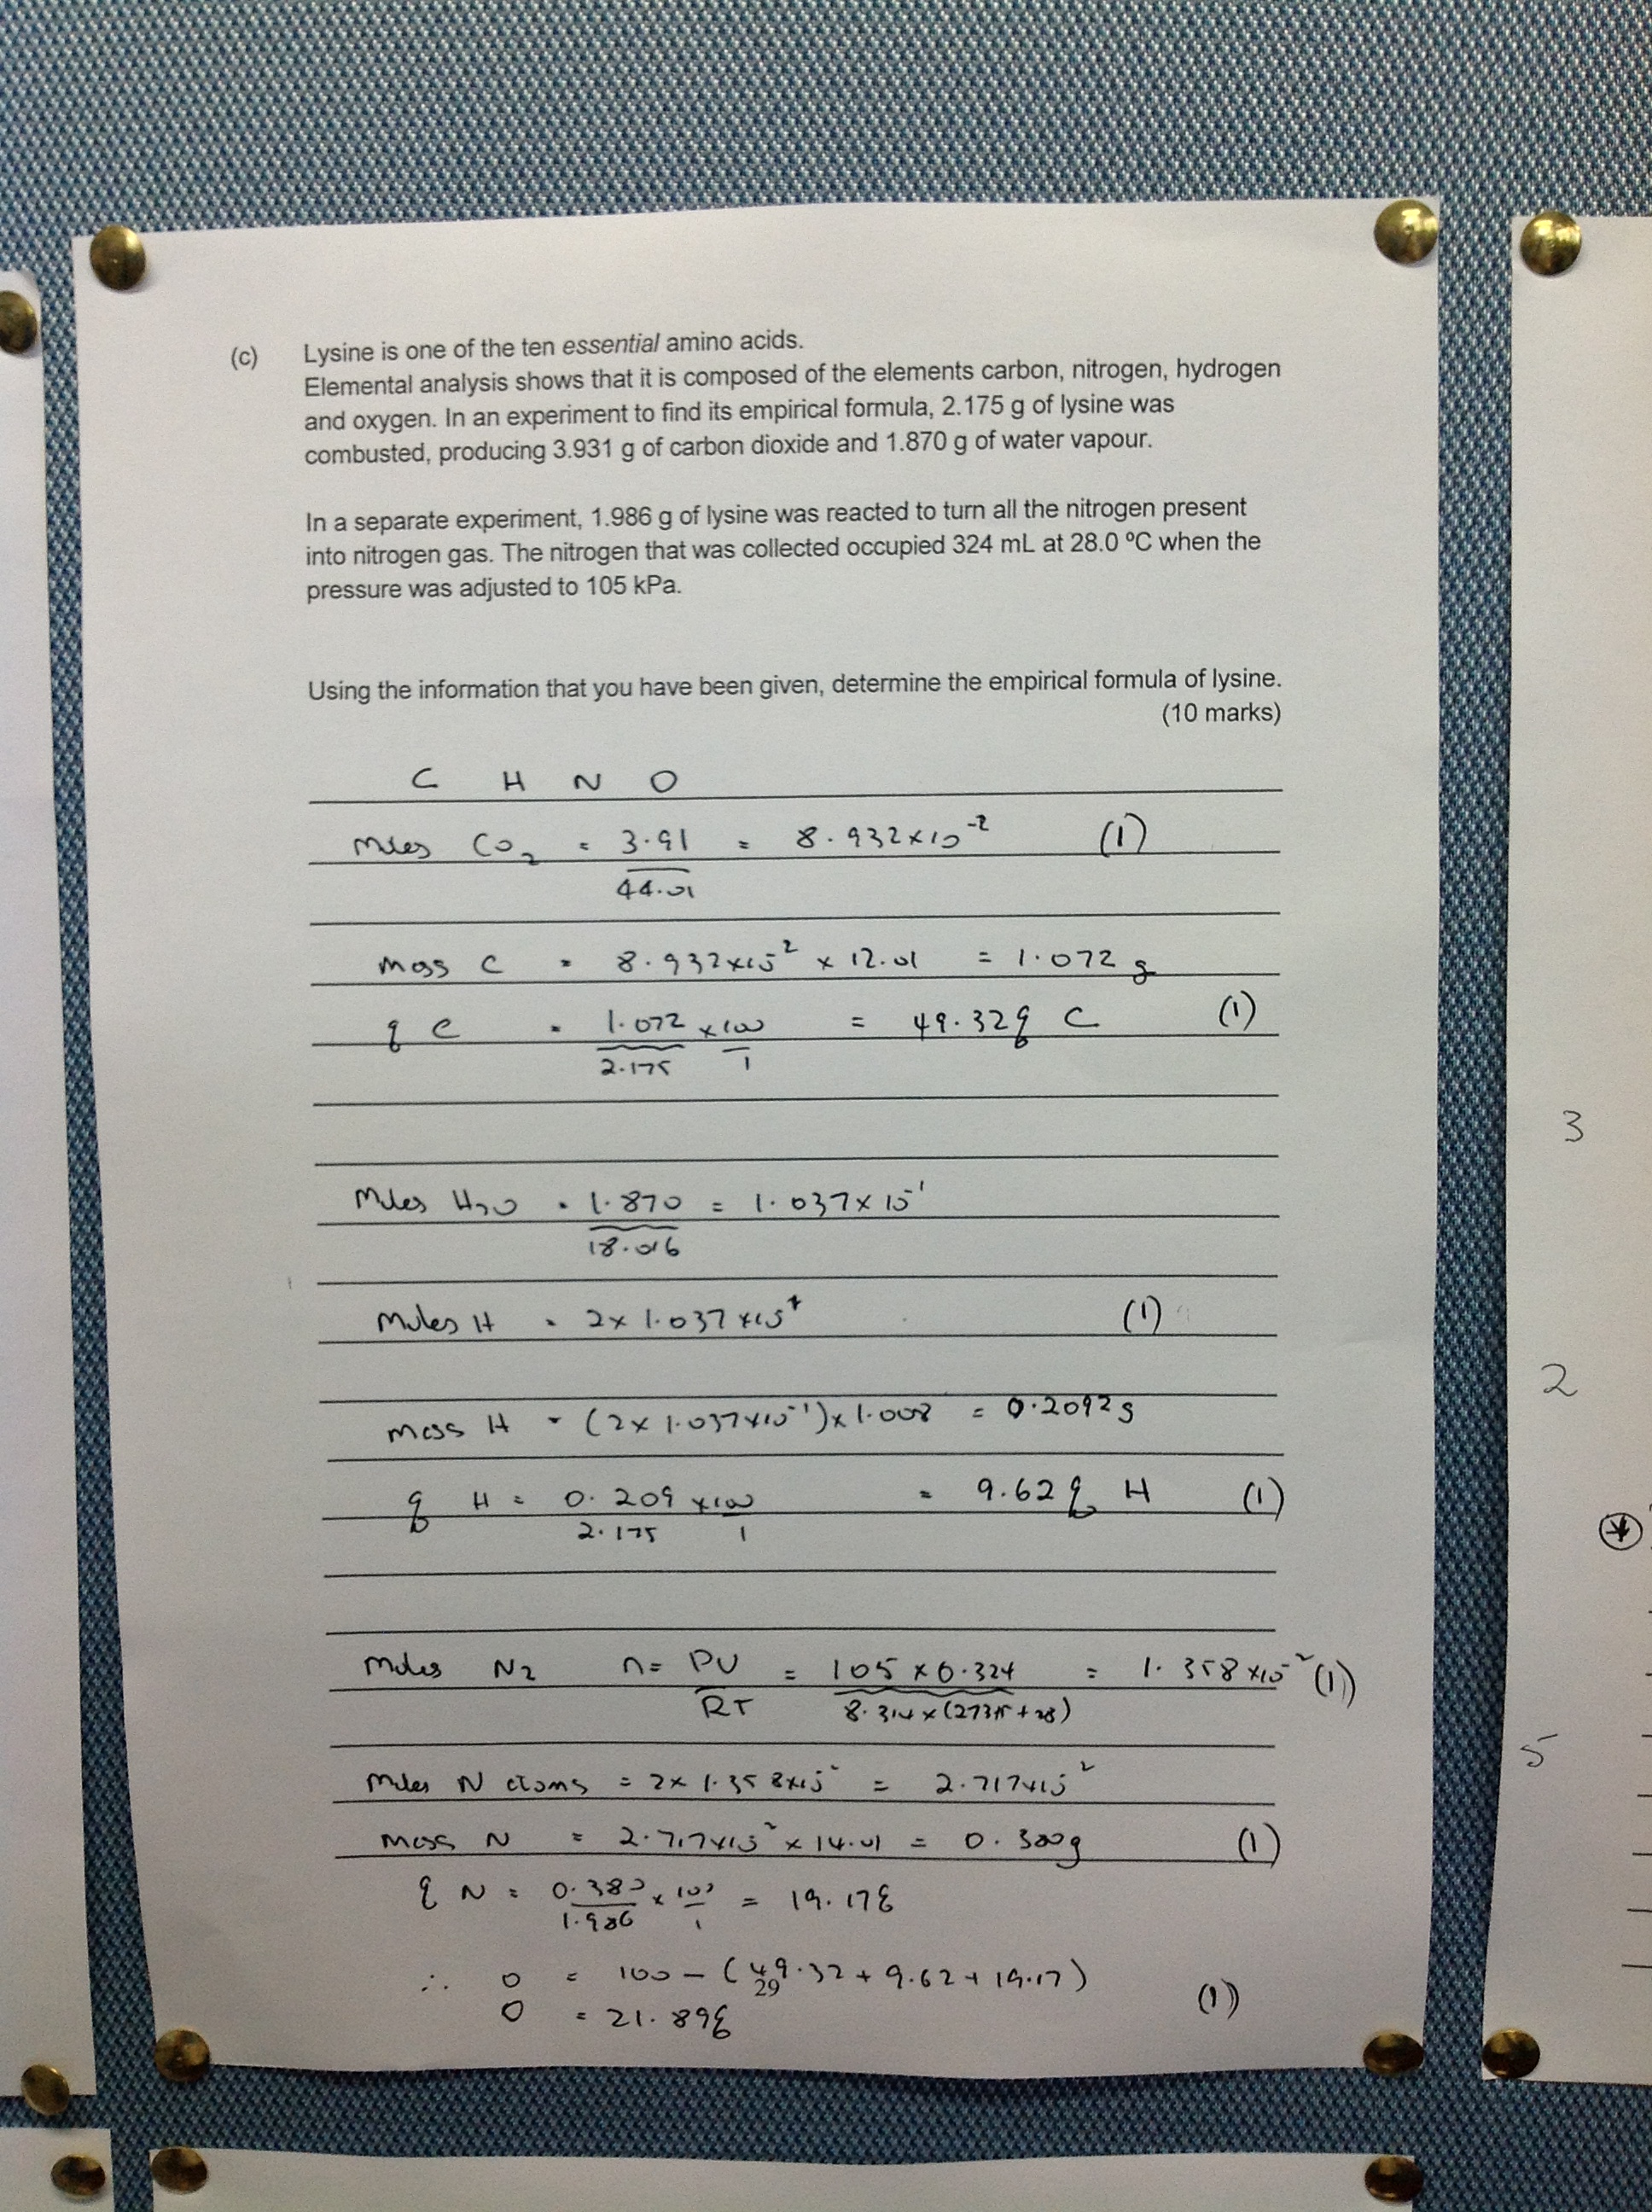 (c) Lysine is one of the ten essential amino acids.
Elemental analysis shows that it is composed of the elements carbon, nitrogen, hydrogen
and oxygen. In an experiment to find its empirical formula, 2.175 g of lysine was
combusted, producing 3.931 g of carbon dioxide and 1.870 g of water vapour.
In a separate experiment, 1.986 g of lysine was reacted to turn all the nitrogen present
into nitrogen gas. The nitrogen that was collected occupied 324 mL at 28.0 ºC when the
pressure was adjusted to 105 kPa.
Using the information that you have been given, determine the empirical formula of lysine.
(10 marks)
C H N O
Moles CO2 = 3.91 = 8.932x10-2 (1)
44.01
mass C = 8.932x10-2 x 12.01 = 1.072 g
% C = 1.072 x 100 = 49.32% C (1)
2.175 1
Moles H2O = 1.870 = 1.037 x 10-1
18.016
Moles H = 2 x 1.037 x10-1 (1)
mass H = (2 x 1.037x10-1) x 1.008 = 0.2092g
% H = 0.209 x100 = 9.62% H (1)
2.175 1
Moles N2 n = PV = 105 x 0.324 = 1.358 x10-2 (1)
RT 8.314 x (273.15 + 28)
Moles N atoms = 2x 1.358x10-2 = 2.717x10-2
mass N = 2.717x10-2 x 14.01 = 0.380g (1)
% N = 0.380 x 100 = 19.17%
1.986 1
∴ O = 100 - (49.32 + 9.62 + 19.17) (1)
29
O = 21.89%
3
2
5